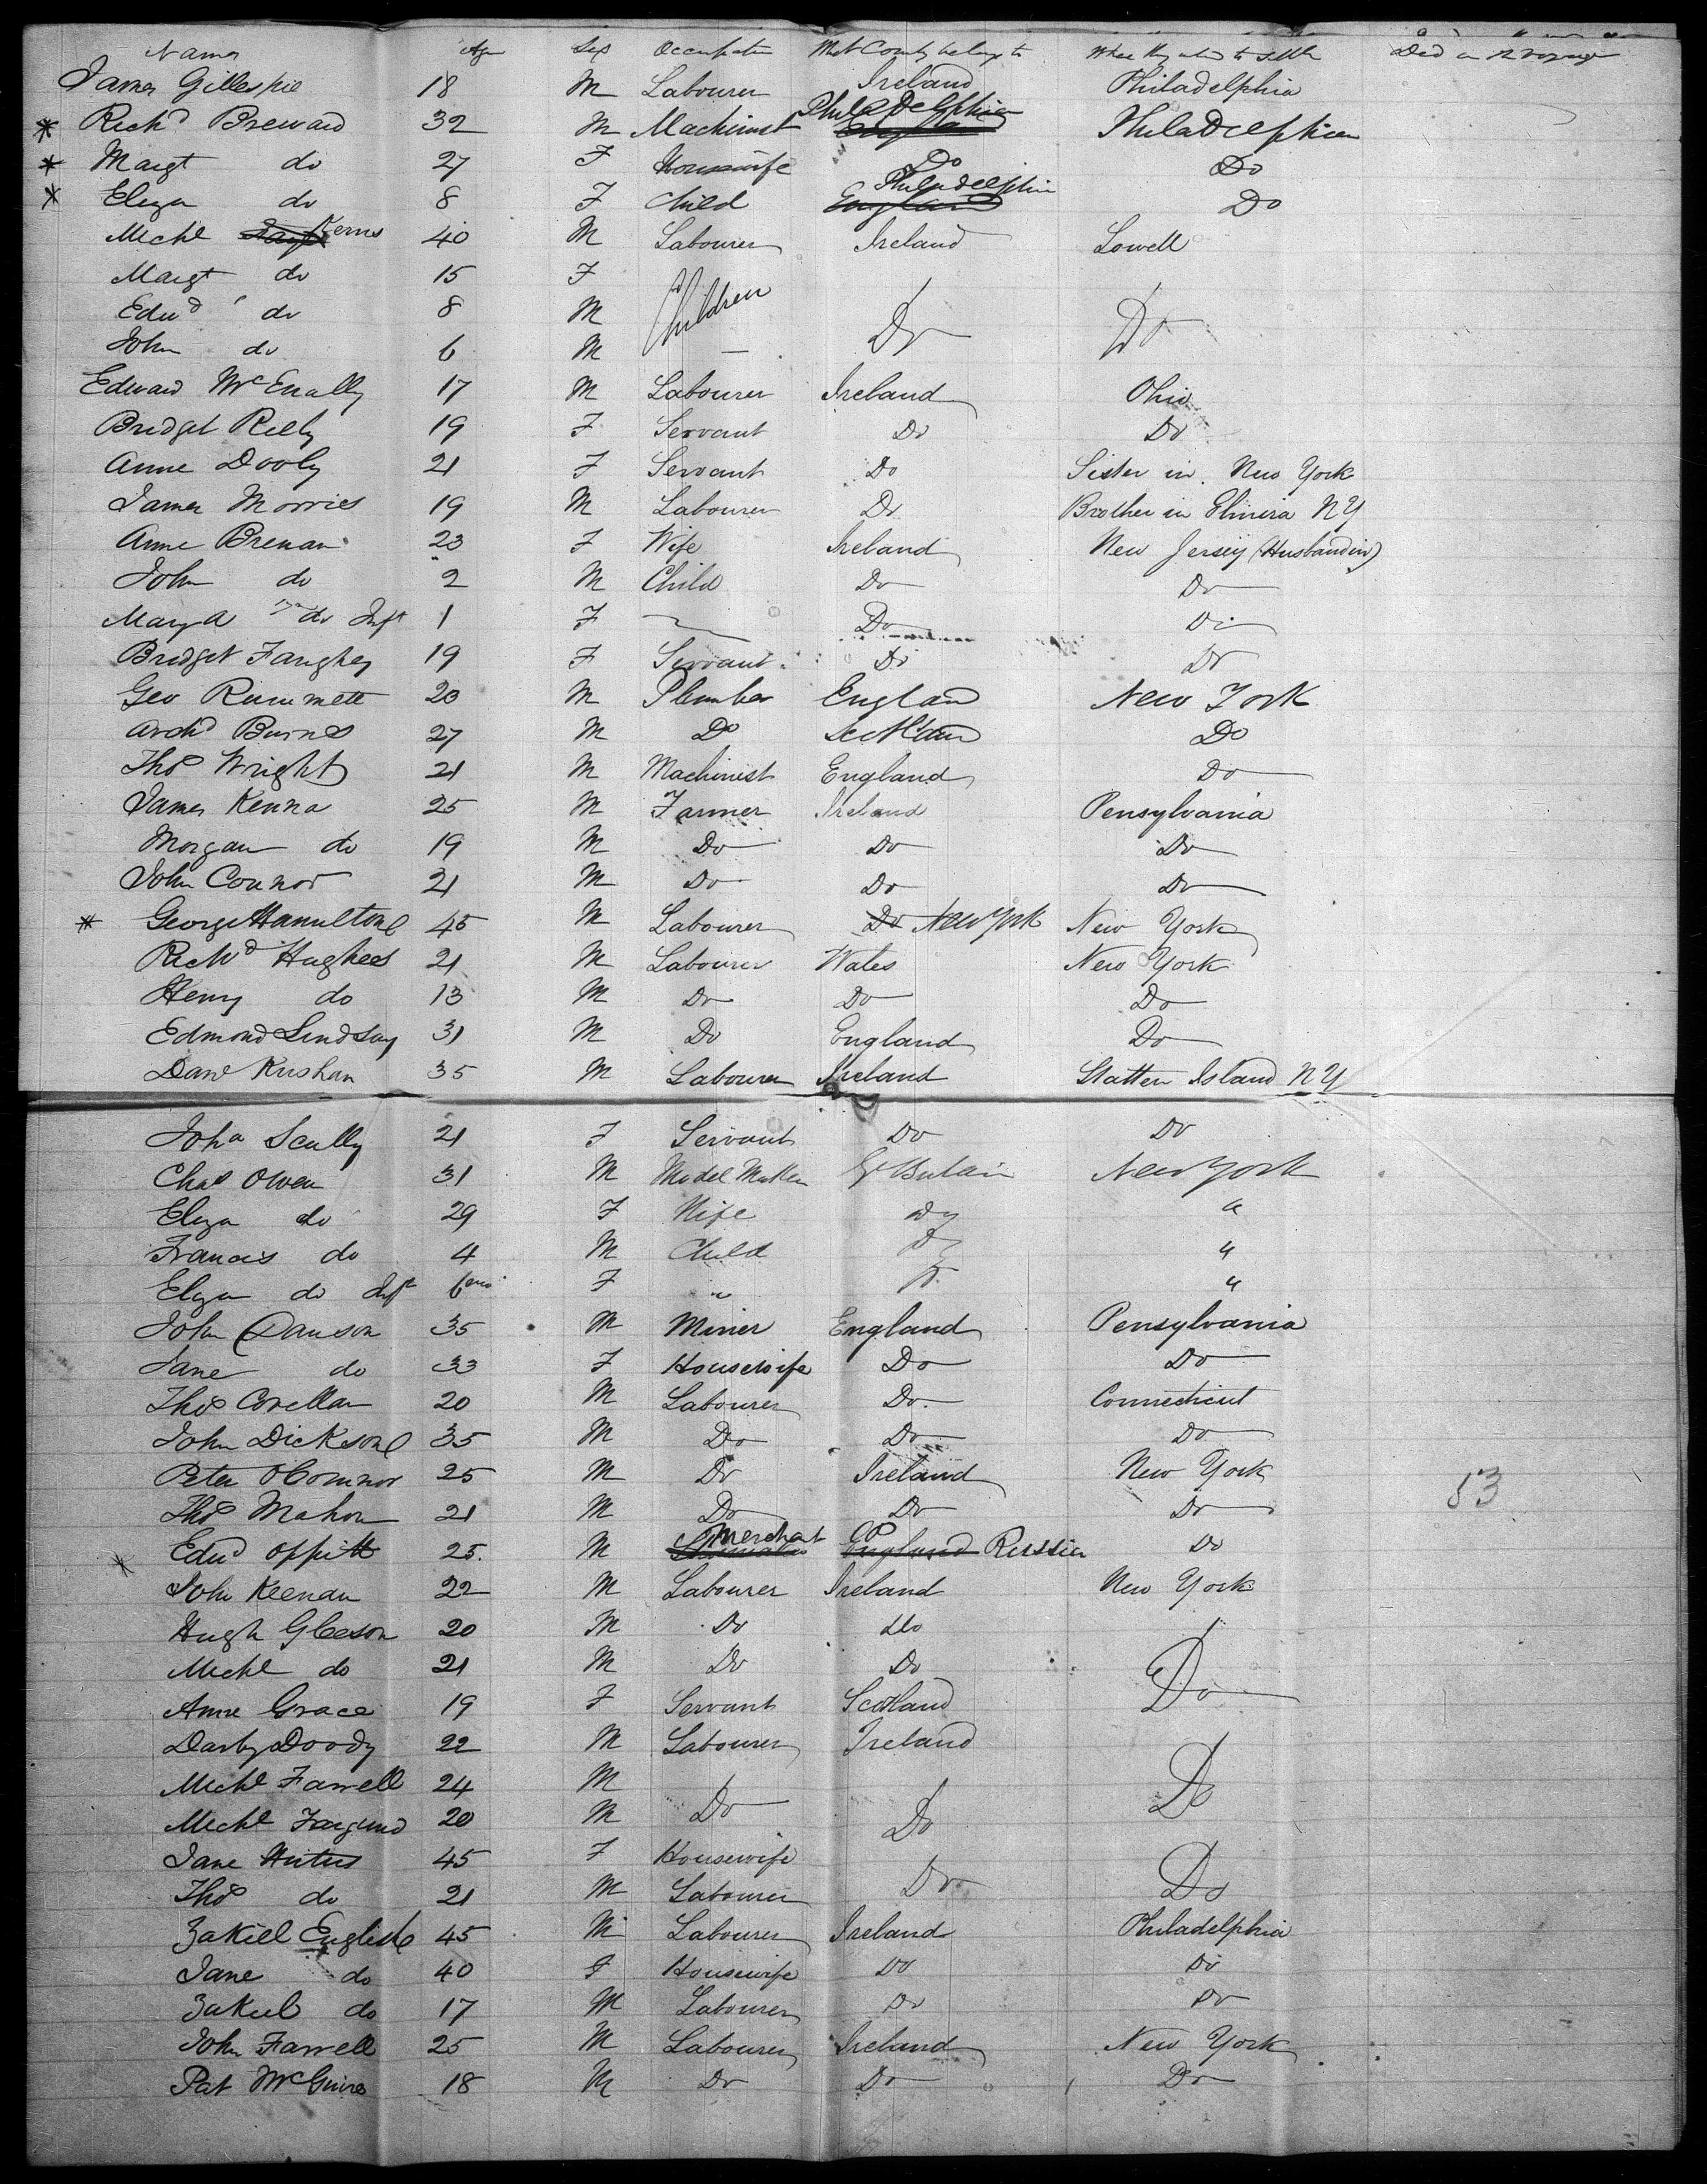 Names Age Sex Occupation What County belongs to Where they intend to settle Died on the voyage
James Gillespie 18 M Labourer Ireland Philadelphia
* Richd Breward 32 M Machinist Philadelphia England Philadelphia
* Margt do 27 F Housewife Do Do
* Eliza do 8 F Child Philadelphia England Do
Michl Kerns 40 M Labourer Ireland Lowell
Margt do 15 F
Edwd do 8 M Children Do Do
John do 6 M
Edward McEnally 17 M Labourer Ireland Ohio
Bridget Reely 19 F Servant Do Do
Anne Dooly 21 F Servant Do Sister in New York
James Morries 19 M Labourer Do Brother in Elmira NY
Anne Brenan 23 F Wife Ireland New Jersey (Husband in)
John do 2 M Child Do Do
Mary A do Inft 1 F Do Do
Bridget Faughey 19 F Servant Do Do
Geo Rummett 20 M Plumber England New York
Archd Burns 27 M Do Scotland Do
Thos Wright 21 M Machinist England Do
James Kenna 25 M Farmer Ireland Pensylvania
Morgan do 19 M Do Do Do
John Connor 21 M Do Do Do
* George Hamilton 45 M Labourer Do New York New York
Richd Hughes 21 M Labourer Wales New York
Henry do 13 M Do Do Do
Edmond Lindsay 31 M Do England Do
Danl Kushan 35 M Labourer Ireland Statten Island NY
Joha Scully 21 F Servant Do Do
Chas Owen 31 M Model Maker Gt Britain New York
Eliza do 29 F Wife Do "
Francis do 4 M Child Do "
Eliza do Inft 6 mo F " Do "
John Danson 35 M Miner England Pensylvania
Jane do 33 F Housewife Do Do
Thos Corellan 20 M Labourer Do Connecticut
John Dickson 35 M Do Do Do
Peter OConnor 25 M Do Ireland New York
Thos Mahon 21 M Do Do Do 53
* Edwd Oppitt 25 M Merchat England Russia Do
John Keenan 22 M Labourer Ireland New York
Hugh Gleeson 20 M Do do
Michl do 21 M Do Do Do
Anne Grace 19 F Servant Scotland
Darby Doody 22 M Labourer Ireland
Michl Farrell 24 M Do
Michl 20 M Do Do
Jane 45 F Housewife
Thos do 21 M Labourer Do Do
Zakiel English 45 M Labourer Ireland Philadelphia
Jane do 40 F Housewife Do Do
Zakiel do 17 M Labourer Do Do
John Farrell 25 M Labourer Ireland New York
Pat McGuire 18 M Do Do Do